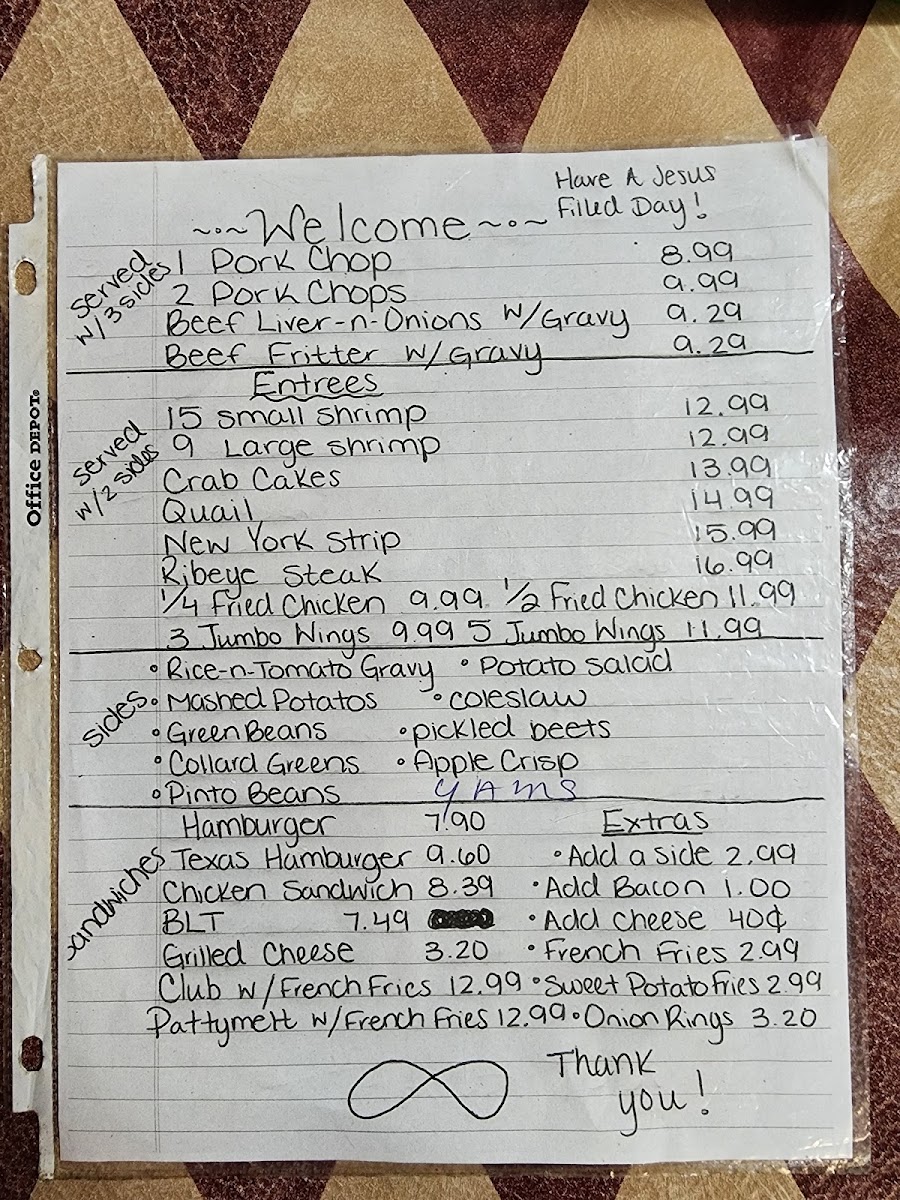 Have A Jesus
Filled Day!
~·~Welcome~·~
Served
w/3 sides
1 Pork Chop 8.99
2 Pork Chops 9.99
Beef Liver-n-Onions w/Gravy 9.29
Beef Fritter w/Gravy 9.29
Entrees
Served
w/2 sides
15 small shrimp 12.99
9 Large shrimp 12.99
Crab Cakes 13.99
Quail 14.99
New York Strip 15.99
Ribeye Steak 16.99
1/4 Fried Chicken 9.99 1/2 Fried Chicken 11.99
3 Jumbo Wings 9.99 5 Jumbo Wings 11.99
Sides
• Rice-n-Tomato Gravy • Potato salad
• Mashed Potatos • coleslaw
• Green Beans • pickled beets
• Collard Greens • Apple Crisp
• Pinto Beans YAMS
Sandwiches
Hamburger 7.90 Extras
Texas Hamburger 9.60 • Add a side 2.99
Chicken Sandwich 8.39 • Add Bacon 1.00
BLT 7.49 • Add cheese 40¢
Grilled Cheese 3.20 • French Fries 2.99
Club w/French Fries 12.99 • Sweet Potato Fries 2.99
Pattymelt w/French Fries 12.99 • Onion Rings 3.20
Thank
you!
Office DEPOT®